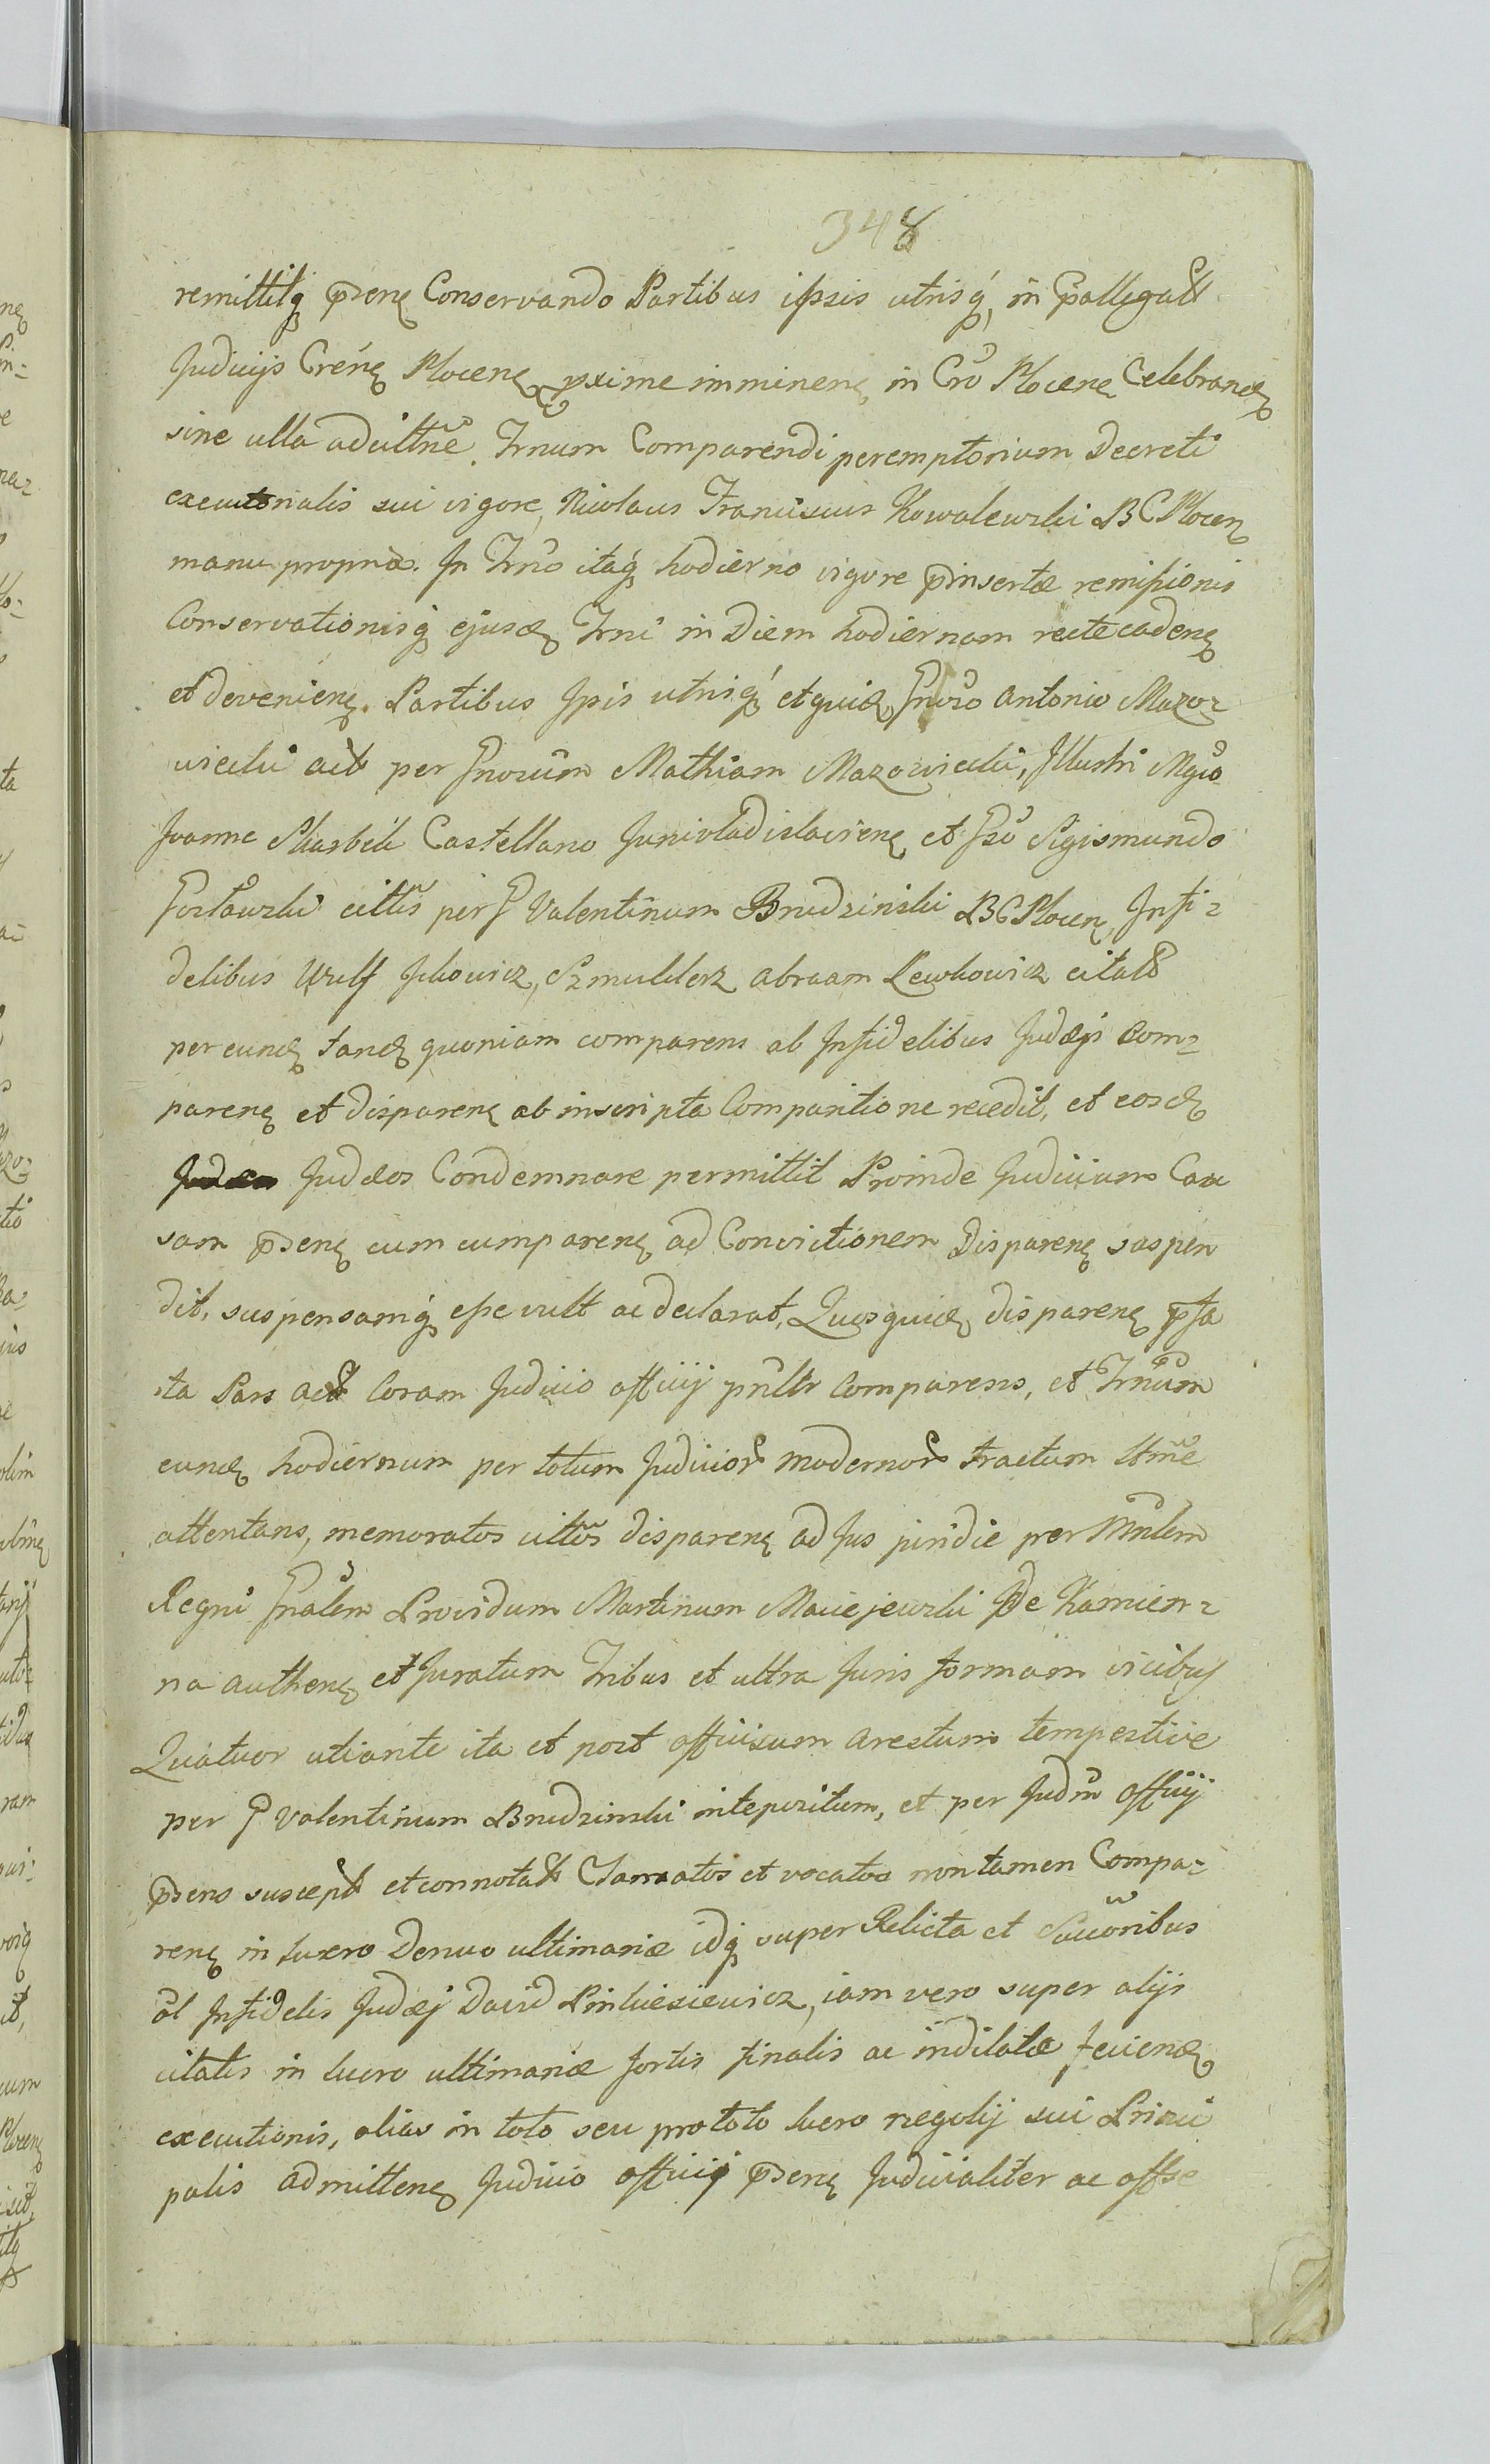 348
remittitq pdene Conservando Partibus ipsis utrisq, in pallegatt
Judicijs Crene Plocene pxime imminene, in Cro Plocene Celebrande
sine ulla adcittne. Trnum Comparendi peremptorium Decreti
executorialis sui vigore, Nicolaus Franciscus Kowalewski BC Plocen
manu propria. In Trno itaq hodierno vigore pinsertæ remissionis
Conservationisq ejusd Trni in Diem hodiernam recte cadene
et deveniene. Partibus Ipsis utrisq et quid Gnoso Antonio Mazo-
wiecki act per Gnosum Mathiam Mazowiecki, Illustri Mgco
Joanne Skarbek Castellano Junivladislaviene et Gso Sigismundo
Gostawski cittis per G Valentinum Brudzinski BC Plocen, Infi-
delibus Wulf Jckowicz, Szmulderz Abraam Lewkowicz citatt
per eund tand quoniam comparens ab Infidelibus Judæis Com-
parene et disparene ab inscripta Comparitione recedit, et eosd
Judæos Condemnare permittit Proinde Judicium Cau
sam pdene cum cumparene ad Convictionem Disparene saspen
dit, suspensamq esse vult ac declarat, Quosquid disparene pfa
ta Pars act Coram Judicio officij pnltr Comparens, et Trnum
eund hodiernum per totum Judicior modernor tractum ltme
attentans, memoratos cittos disparene ad Jus juridie per Mnlem
Regni Gnalem Providum Martinum Maciejewski De Kamien-
na authene et Juratum Tribus et ultra Juris formam vicibus
Quatuor uti ante ita et post officisum arestum tempestive
per G Valentinum Brudzinski intepositum, et per Judm officij
pdens suscept et connotatt Clamatos et vocatos non tamen Compa-
rene in lucro Denuo ultimariæ idq super Relicta et Succoribus
ol Infidelis Judæj David Pinkiesiewicz, iam vero super alijs
citatis in lucro ultimariæ fortis finalis ac indilatæ feciend
executionis, alias in toto seu pro toto lucro negotij sui Princi
palis admittene Judicio officij pdene Judicialiter ac offse